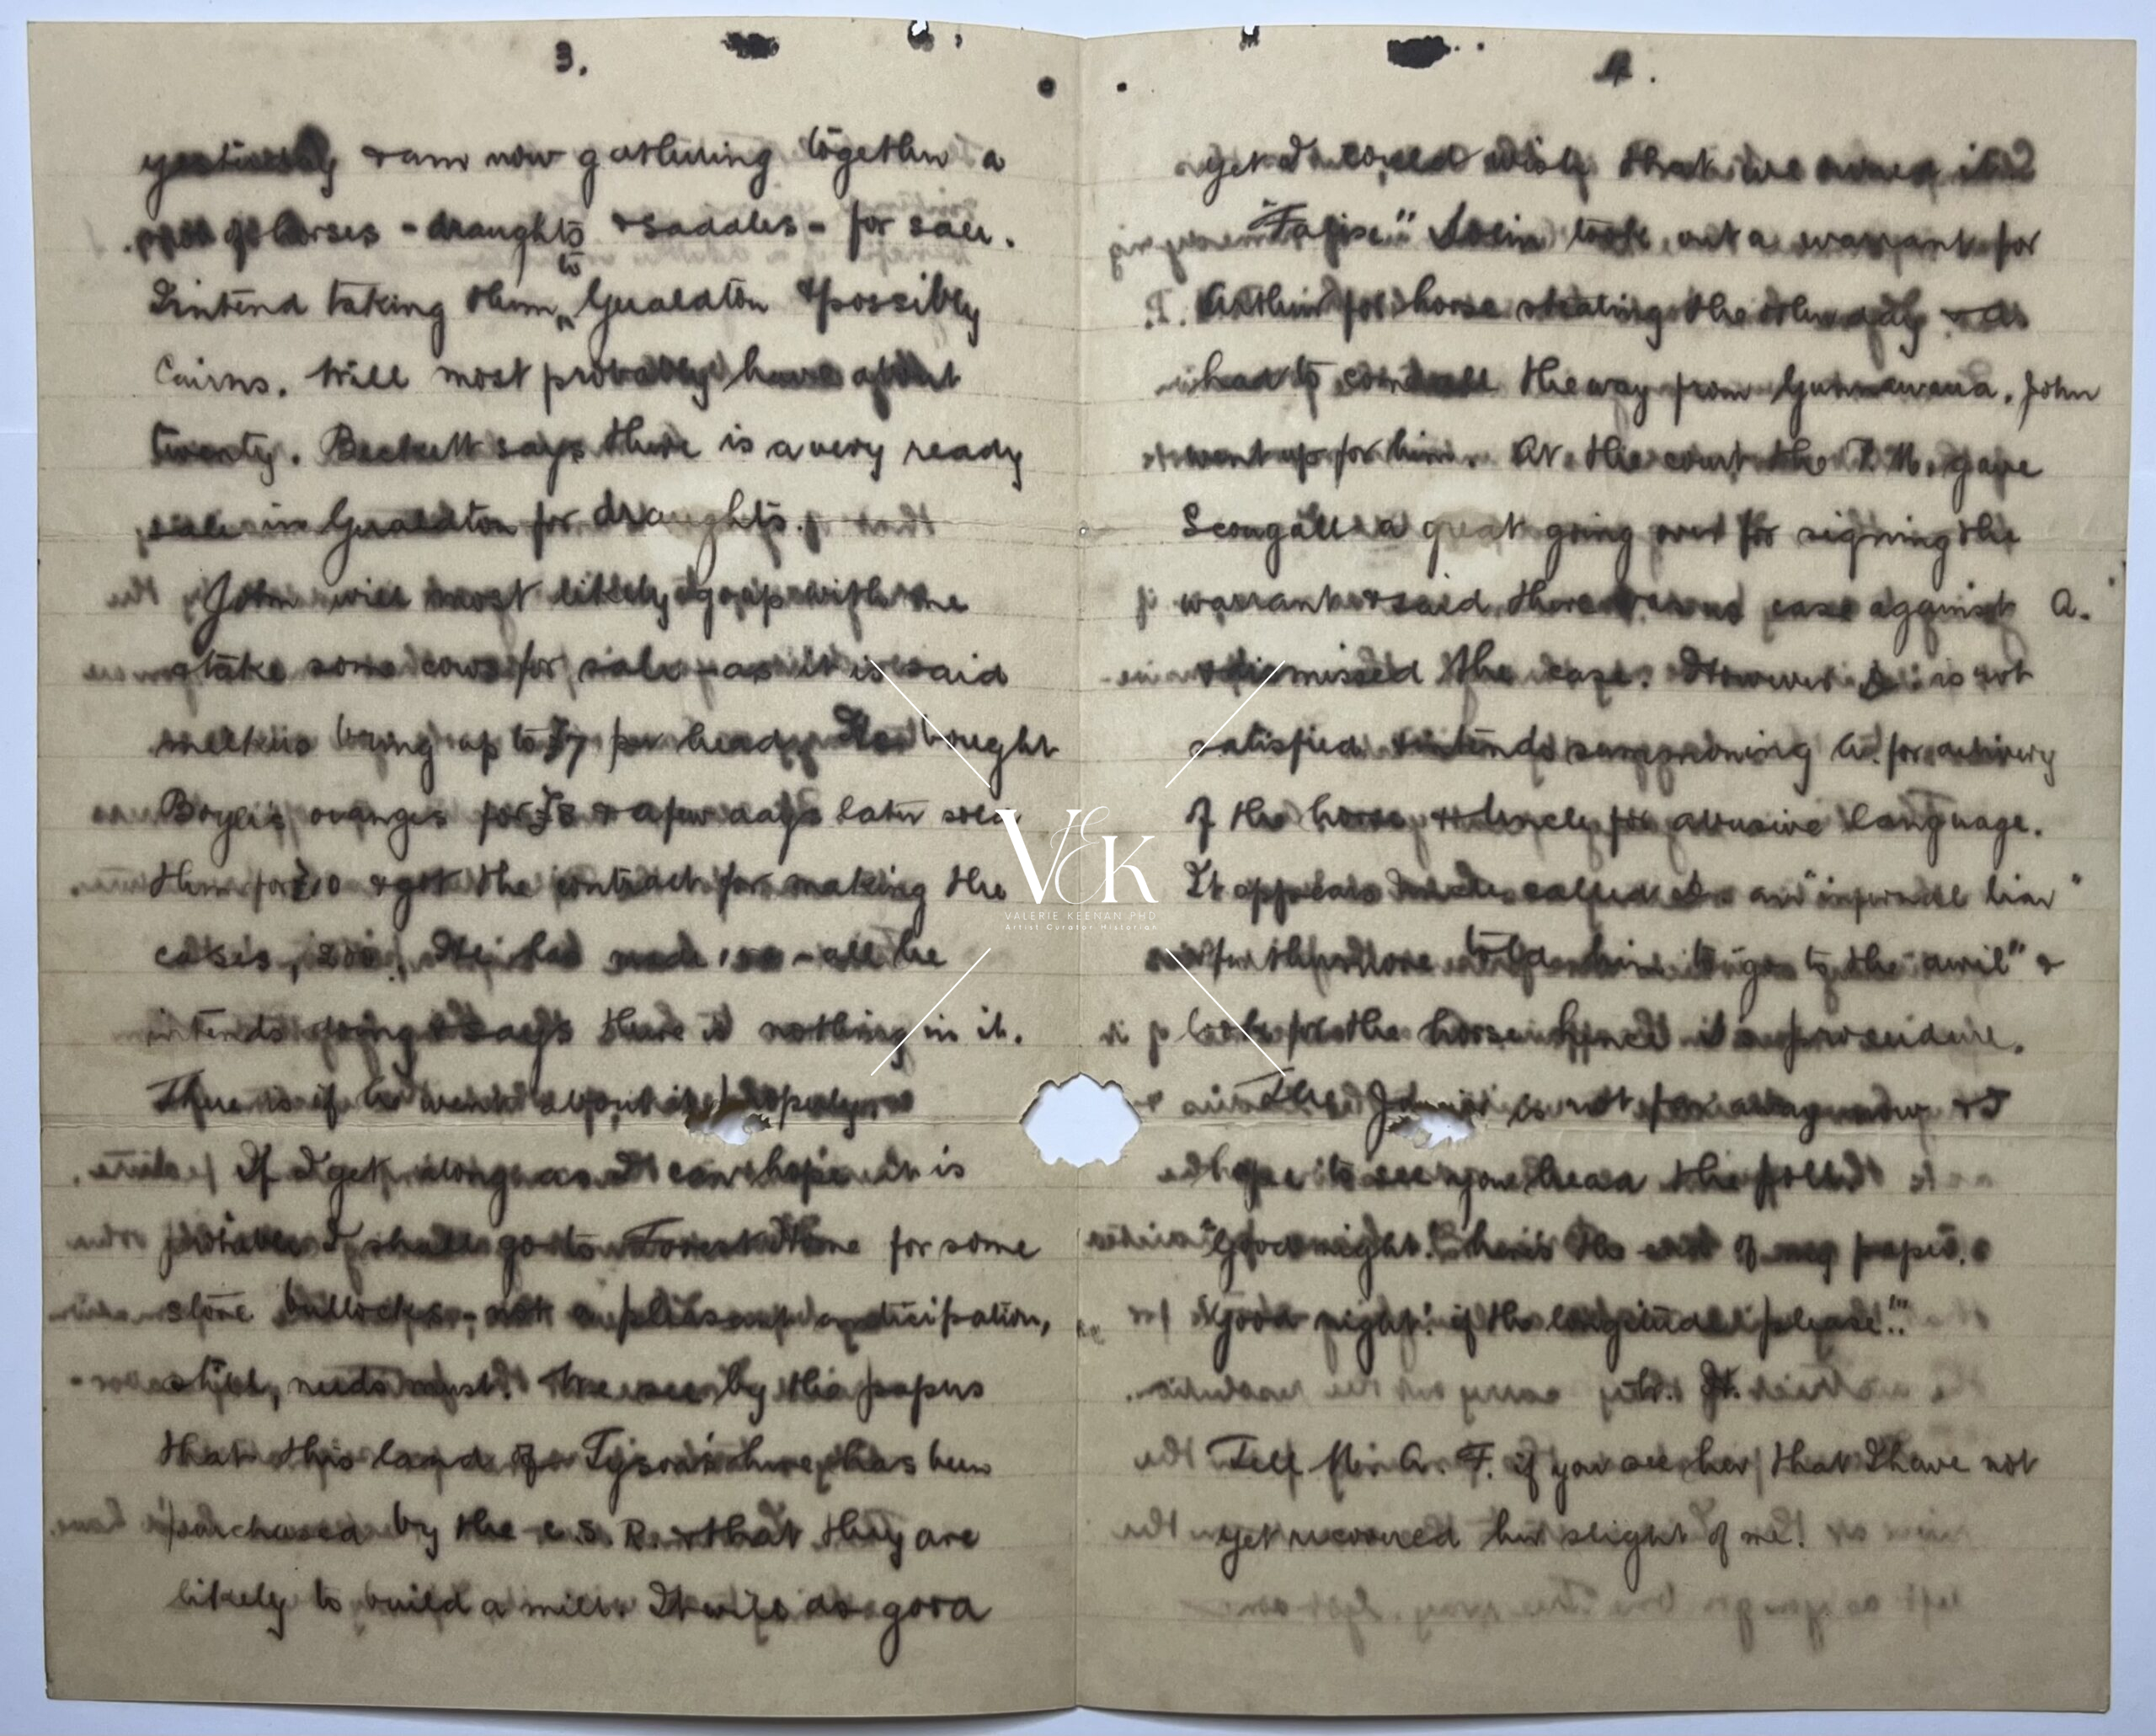 3.
yesterday & am now gathering together a
of horses - draughts & saddles - for sale.
to
I intend taking them Geraldton & possibly
Cairns. Will most probably have about
twenty. Beckett says there is a very ready
sale in Geraldton for draughts.
John will most likely go up with me
& take some cows for sale - as it is said
milkers bring up to £7 per head. He bought
Boyle's oranges for £8 & a few days later sold
them for £10 & got the contract for making the
cases, 200. He has made 150 - all he
intends doing & says there is nothing in it.
There is if he went about it properly.
If I get along as I can hope it is
I shall go to Forest Home for some
store bullocks - not a pleasant anticipation,
still, needs must. We see by the papers
that this land of Tyson's here has been
purchased by the C. S. R. & that they are
likely to build a mill. It will do good
4.
yet I could wish that we owned it
took out a warrant for
Arthur for horse stealing the other day & As
had to come all the way from Gunnawarra. John
went up for him. At the court the P. M. gave
Scougall a great going over for signing the
warrant & said there was no case against A.
& dismissed the case. However is not
satisfied & intends summoning A. for delivery
of the horse & Uncle for abusive language.
It appears Uncle called an "infernal liar"
& furthermore told him to "go to the devil" &
look for the horse hence
The is not far away now & I
hope to see you head the poll.
"Good night." here's the end of my paper.
"Good night! if the longitude please!"
Tell Mrs A. F. if you see her that I have not
yet recovered her slight of me!
VEK
VALERIE KEENAN PHD
Artist Curator Historian